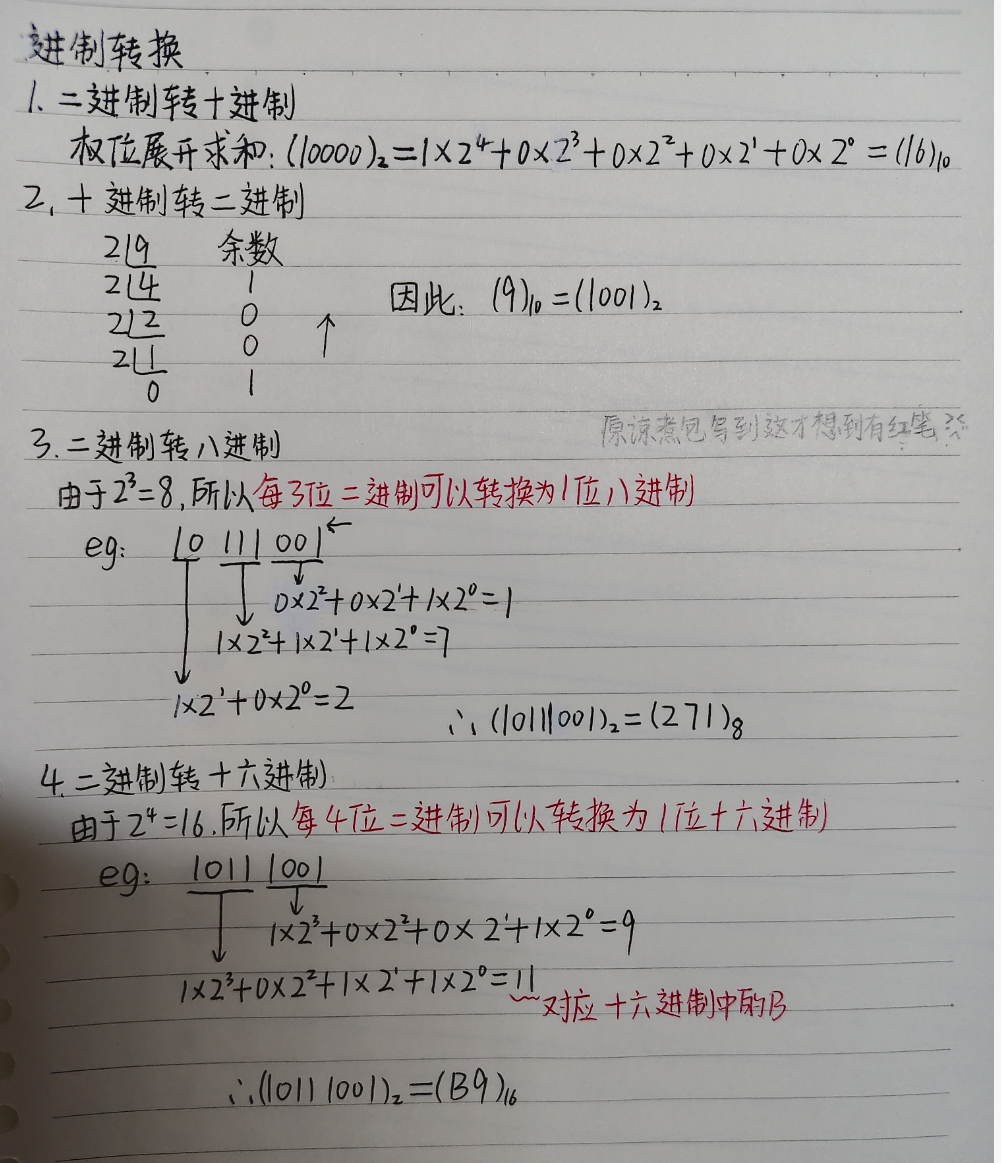 进制转换
1. 二进制转十进制
权位展开求和: (10000)₂=1×2⁴+0×2³+0×2²+0×2¹+0×2⁰=(16)₁₀
2. 十进制转二进制
2|9 余数
2|4 1
2|2 0
2|1 0 ↑
0 1
因此: (9)₁₀=(1001)₂
原谅煮包写到这才想到有红笔
3. 二进制转八进制
由于2³=8,所以每3位二进制可以转换为1位八进制
eg: 10 111 001←
0×2²+0×2¹+1×2⁰=1
1×2²+1×2¹+1×2⁰=7
1×2¹+0×2⁰=2
∴(10111001)₂=(271)₈
4. 二进制转十六进制
由于2⁴=16,所以每4位二进制可以转换为1位十六进制
eg: 1011 1001
1×2³+0×2²+0×2¹+1×2⁰=9
1×2³+0×2²+1×2¹+1×2⁰=11
对应十六进制中的B
∴(1011 1001)₂=(B9)₁₆